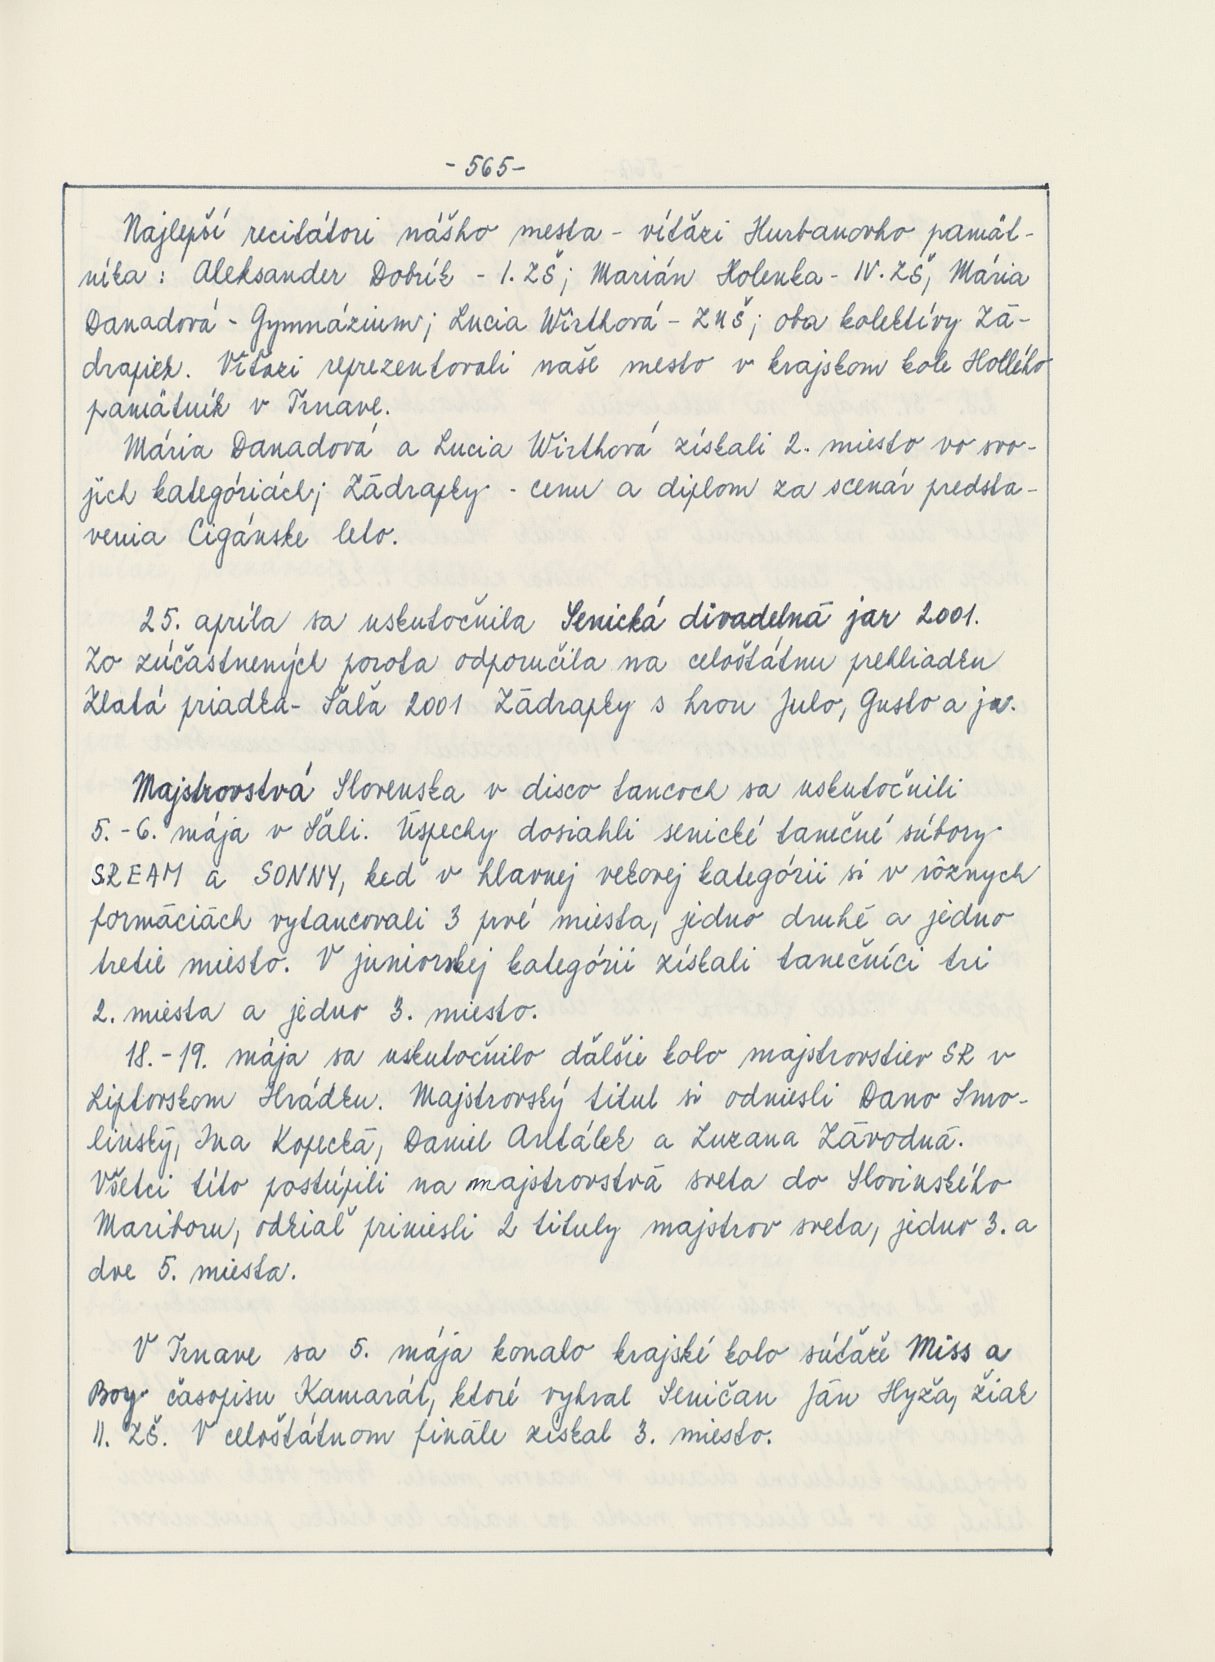 -565-
Najlepší recitátori nášho mesta - víťazi Hurbanovho pamät-
níka: Aleksander Dobrík - I. ZŠ; Marián Holenka - IV. ZŠ, Mária
Danadová - Gymnázium; Lucia Wirthová - ZUŠ; oba kolektívy Zá-
drapiek. Víťazi reprezentovali naše mesto v krajskom kole Hollého
pamätník v Trnave.
Mária Danadová a Lucia Wirthová získali 2. miesto vo svo-
jich kategóriách; Zádrapky - cenu a diplom za scenár predsta-
venia Cigánske leto.
25. apríla sa uskutočnila Senická divadelná jar 2001.
Zo zúčastnených porota odporučila na celoštátnu prehliadku
Zlatá priadka - Šaľa 2001 Zádrapky s hrou Julo, Gusto a ja.
Majstrovstvá Slovenska v disco tancoch sa uskutočnili
5. - 6. mája v Šali. Úspechy dosiahli senické tanečné súbory
SREAM a SONNY, keď v hlavnej vekovej kategórii si v rôznych
formáciách vytancovali 3 prvé miesta, jedno druhé a jedno
tretie miesto. V juniorskej kategórii získali tanečníci tri
2. miesta a jedno 3. miesto.
18. - 19. mája sa uskutočnilo ďalšie kolo majstrovstiev SR v
Liptovskom Hrádku. Majstrovský titul si odniesli Dano Smo-
linský, Ina Kopecká, Daniel Antálek a Zuzana Závodná.
Všetci títo postúpili na majstrovstvá sveta do Slovinského
Mariboru, odkiaľ priniesli 2 tituly majstrov sveta, jedno 3. a
dve 5. miesta.
V Trnave sa 5. mája konalo krajské kolo súťaže Miss a
Boy časopisu Kamarát, ktoré vyhral Seničan Ján Hyža, žiak
II. ZŠ. V celoštátnom finále získal 3. miesto.